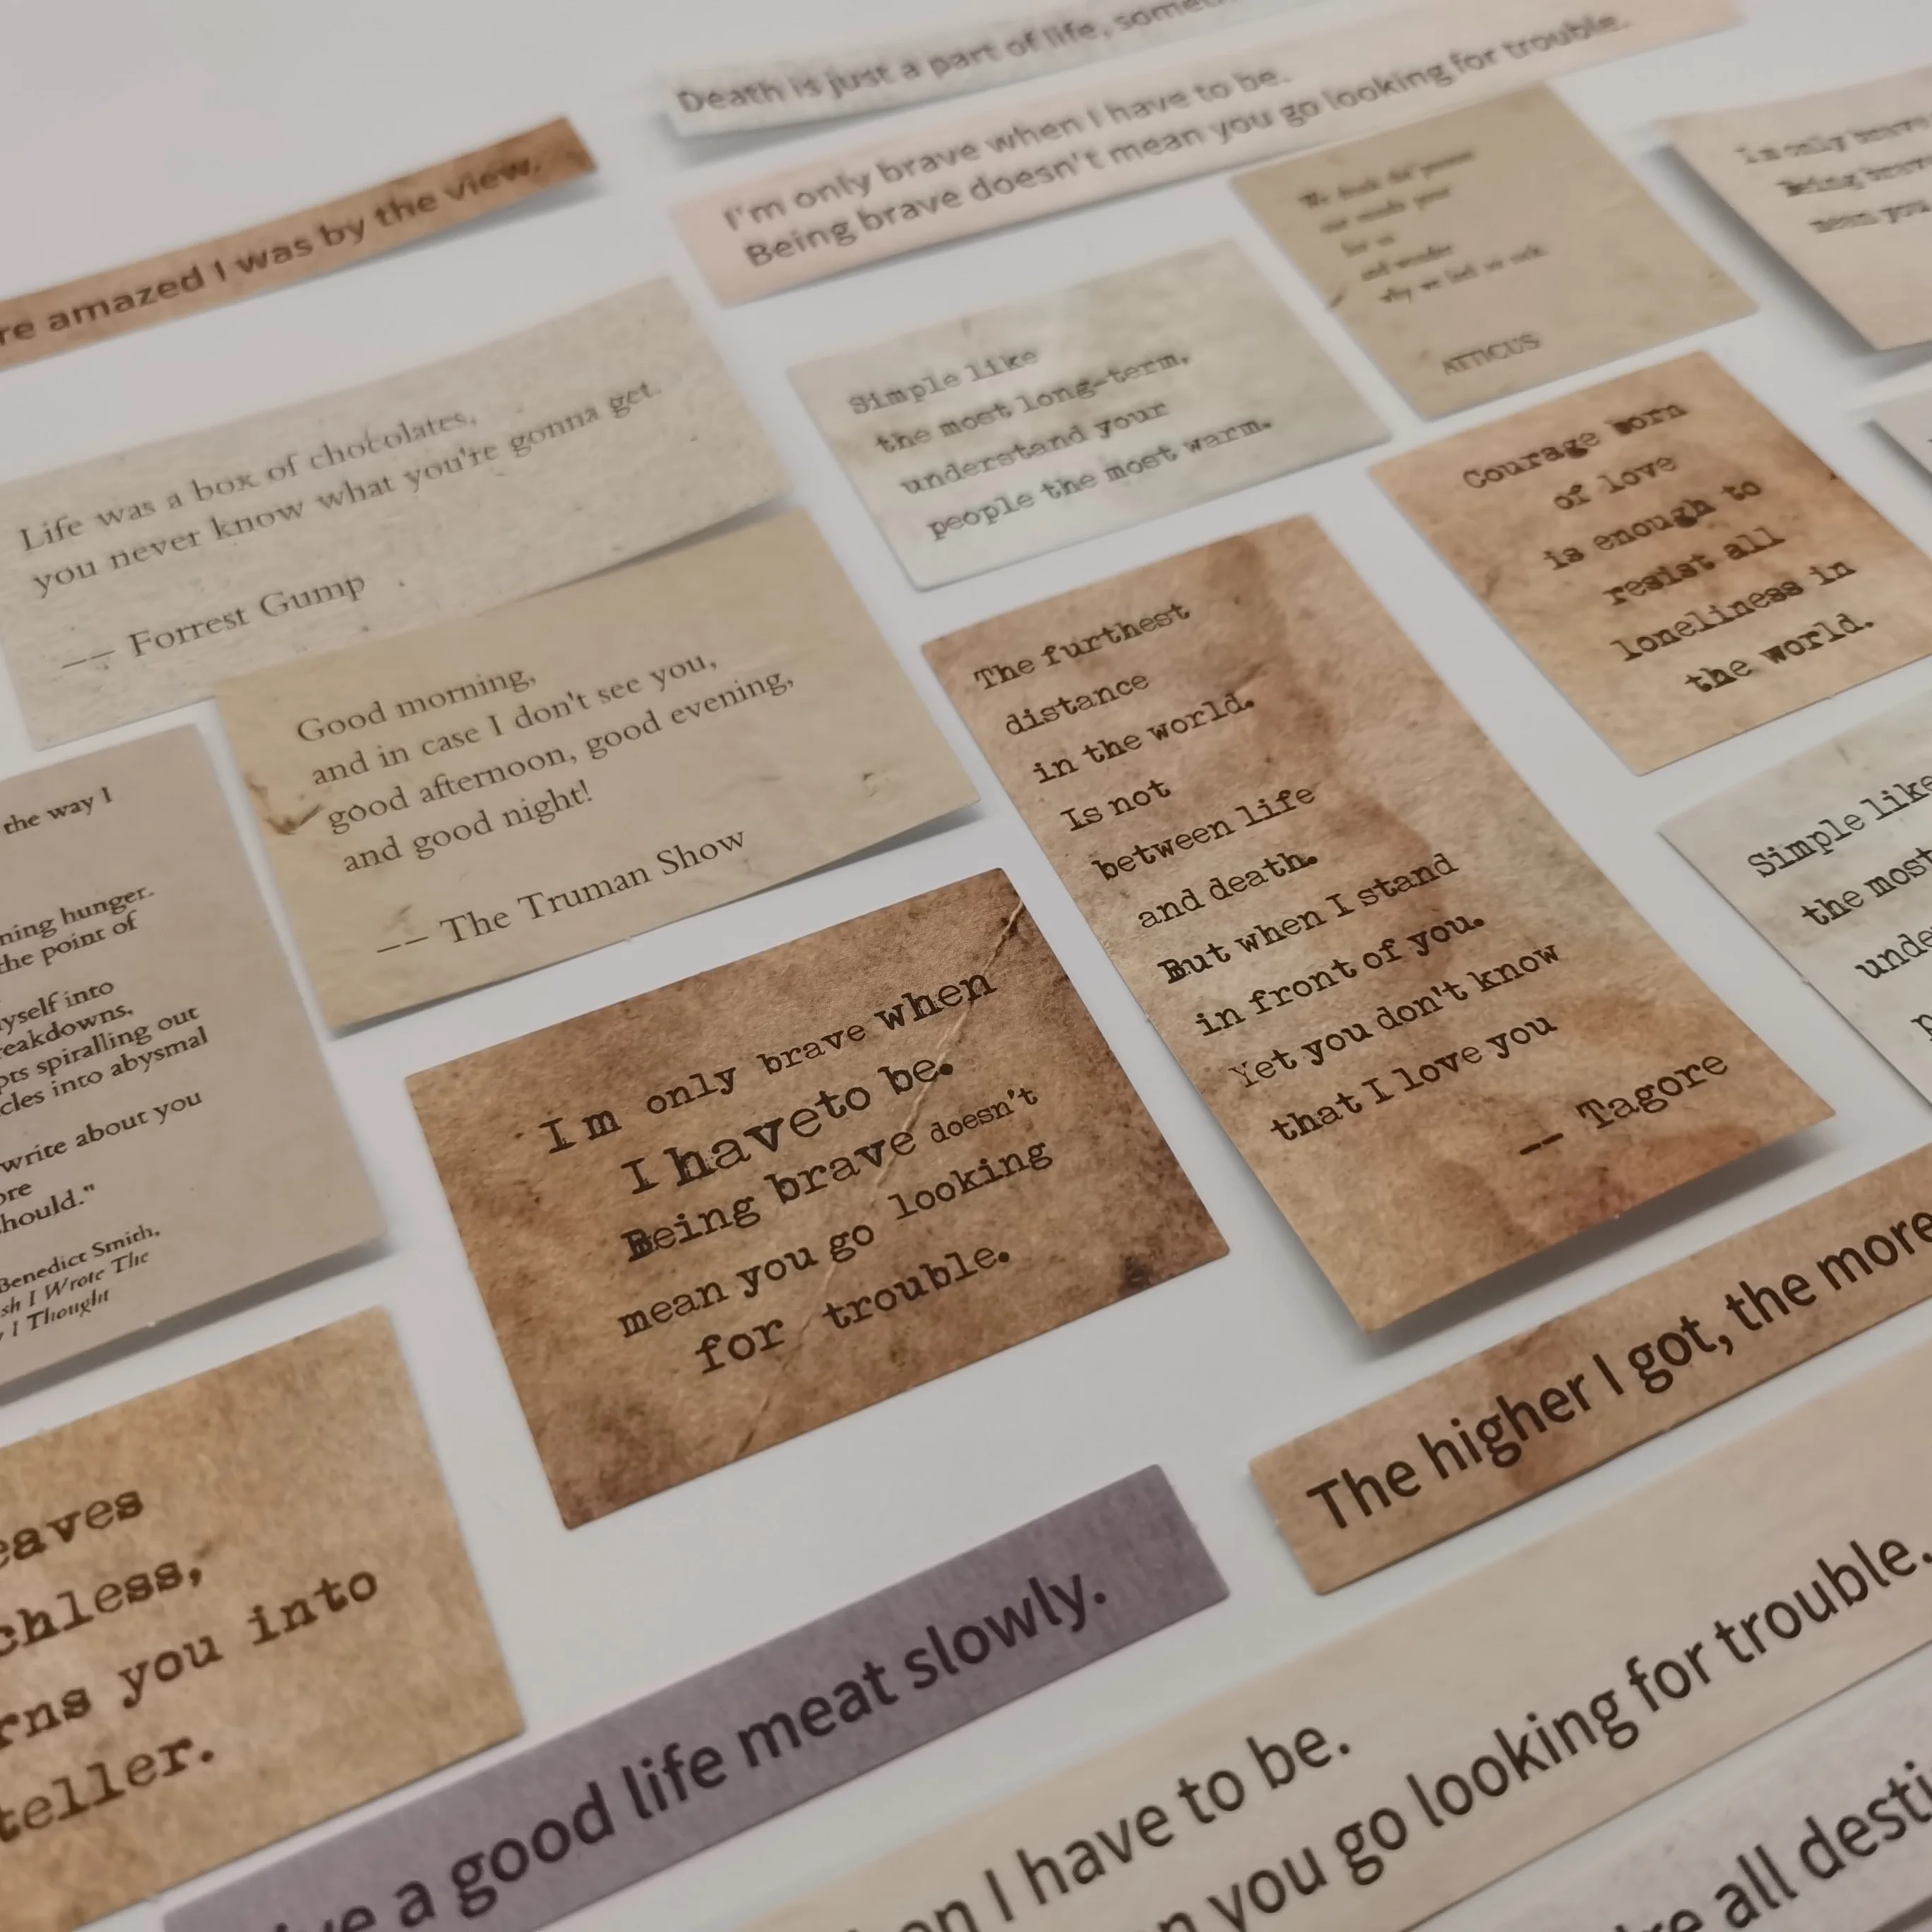 Death is just a part of life,
I'm only brave when I have to be.
Being brave doesn't mean you go looking for trouble.
amazed I was by the view.
We drink the poison
our minds pour
for us
and wonder
why we feel so sick.
ATTICUS
I m only brave
Being brave
mean you
Life was a box of chocolates,
you never know what you're gonna get.
-- Forrest Gump
Simple like
the most long-term,
understand your
people the most warm.
Courage Born
of love
is enough to
resist all
loneliness in
the world.
Good morning,
and in case I don't see you,
good afternoon, good evening,
and good night!
-- The Truman Show
The furthest
distance
in the world.
Is not
between life
and death.
But when I stand
in front of you.
Yet you don't know
that I love you
-- Tagore
Simple like
the most
the way I
hunger.
the point of
into
spiralling out
into abysmal
write about you
should."
Benedict Smith,
I Wrote The
I Thought
I m only brave when
I haveto be.
Being brave doesn't
mean you go looking
for trouble.
The higher I got, the more
you into
a good life meat slowly.
I have to be.
you go looking for trouble.
all